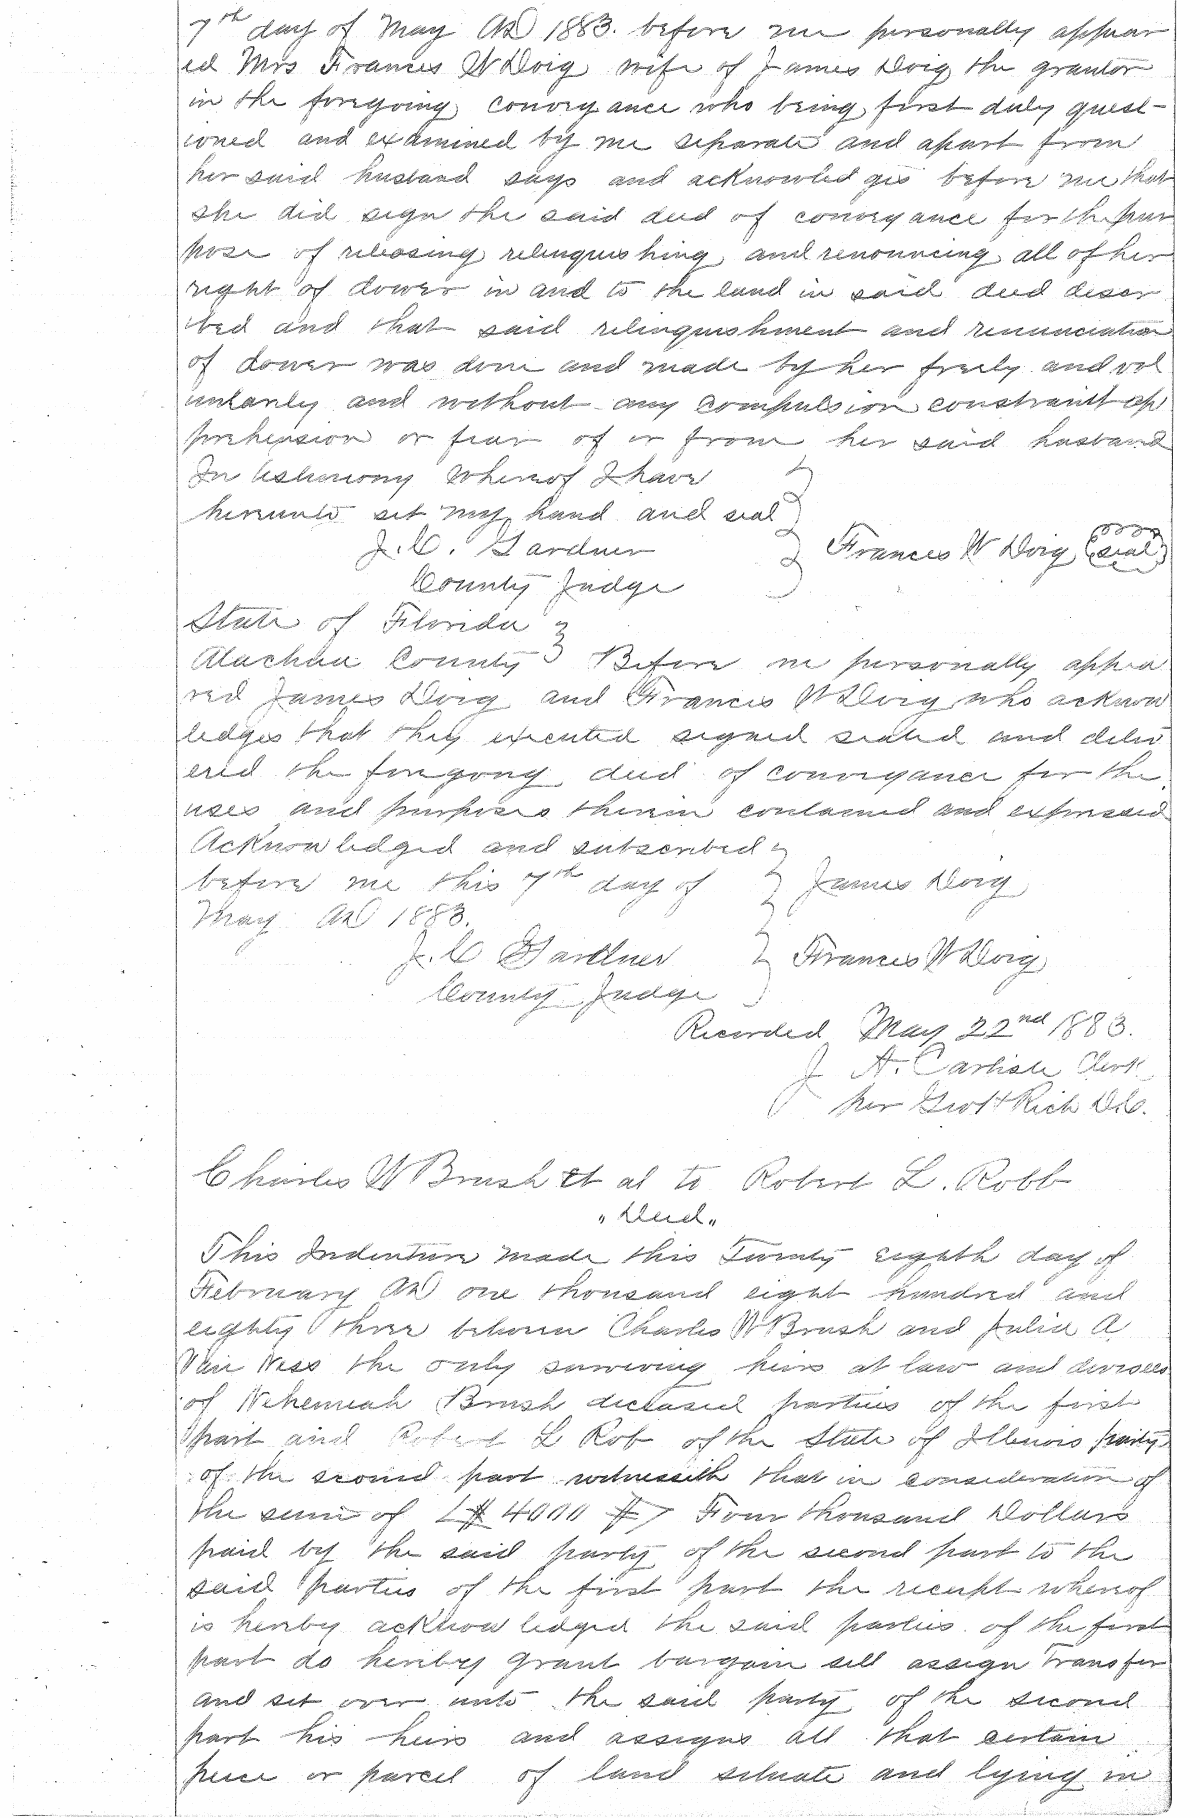 7th day of May AD 1883. before me personally appear
ed Mrs Frances W Doig wife of James Doig the grantor
in the foregoing conveyance who being first duly quest-
ioned and examined by me separate and apart from
her said husband says and acknowledges before me that
she did sign the said deed of conveyance for the pur
pose of releasing relinquishing and renouncing all of her
right of dower in and to the land in said deed descr
ibed and that said relinquishment and renunciation
of dower was done and made by her freely and vol
untarily and without any compulsion constraint ap
prehension or fear of or from her said husband
In testimony whereof I have
hereunto set my hand and seal
J. C. Gardner
County Judge
Frances W Doig (seal)
State of Florida
Alachua County Before me personally appea
red James Doig and Frances W Doig who acknow
ledges that they executed signed sealed and deliv
ered the foregoing deed of conveyance for the
uses and purposes therein contained and expressed
Acknowledged and subscribed
before me this 7th day of
May AD 1883.
James Doig
J. C Gardner
County Judge
Frances W Doig
Recorded May 22nd 1883.
J A. Carlisle Clerk
per Geo H Rich D.C.
Charles W Brush et al to Robert L. Robb
"Deed"
This Indenture made this Twenty eighth day of
February AD one thousand eight hundred and
eighty three between Charles W Brush and Julia A
Van Ness the only surviving heirs at law and devisees
of Nehemiah Brush deceased parties of the first
part and Robert L Rob of the State of Illinois party
of the second part witnesseth that in consideration of
the sum of $4000 Four thousand Dollars
paid by the said party of the second part to the
said parties of the first part the receipt whereof
is hereby acknowledged the said parties of the first
part do hereby grant bargain sell assign Transfer
and set over unto the said party of the second
part his heirs and assigns all that certain
peice or parcel of land situate and lying in